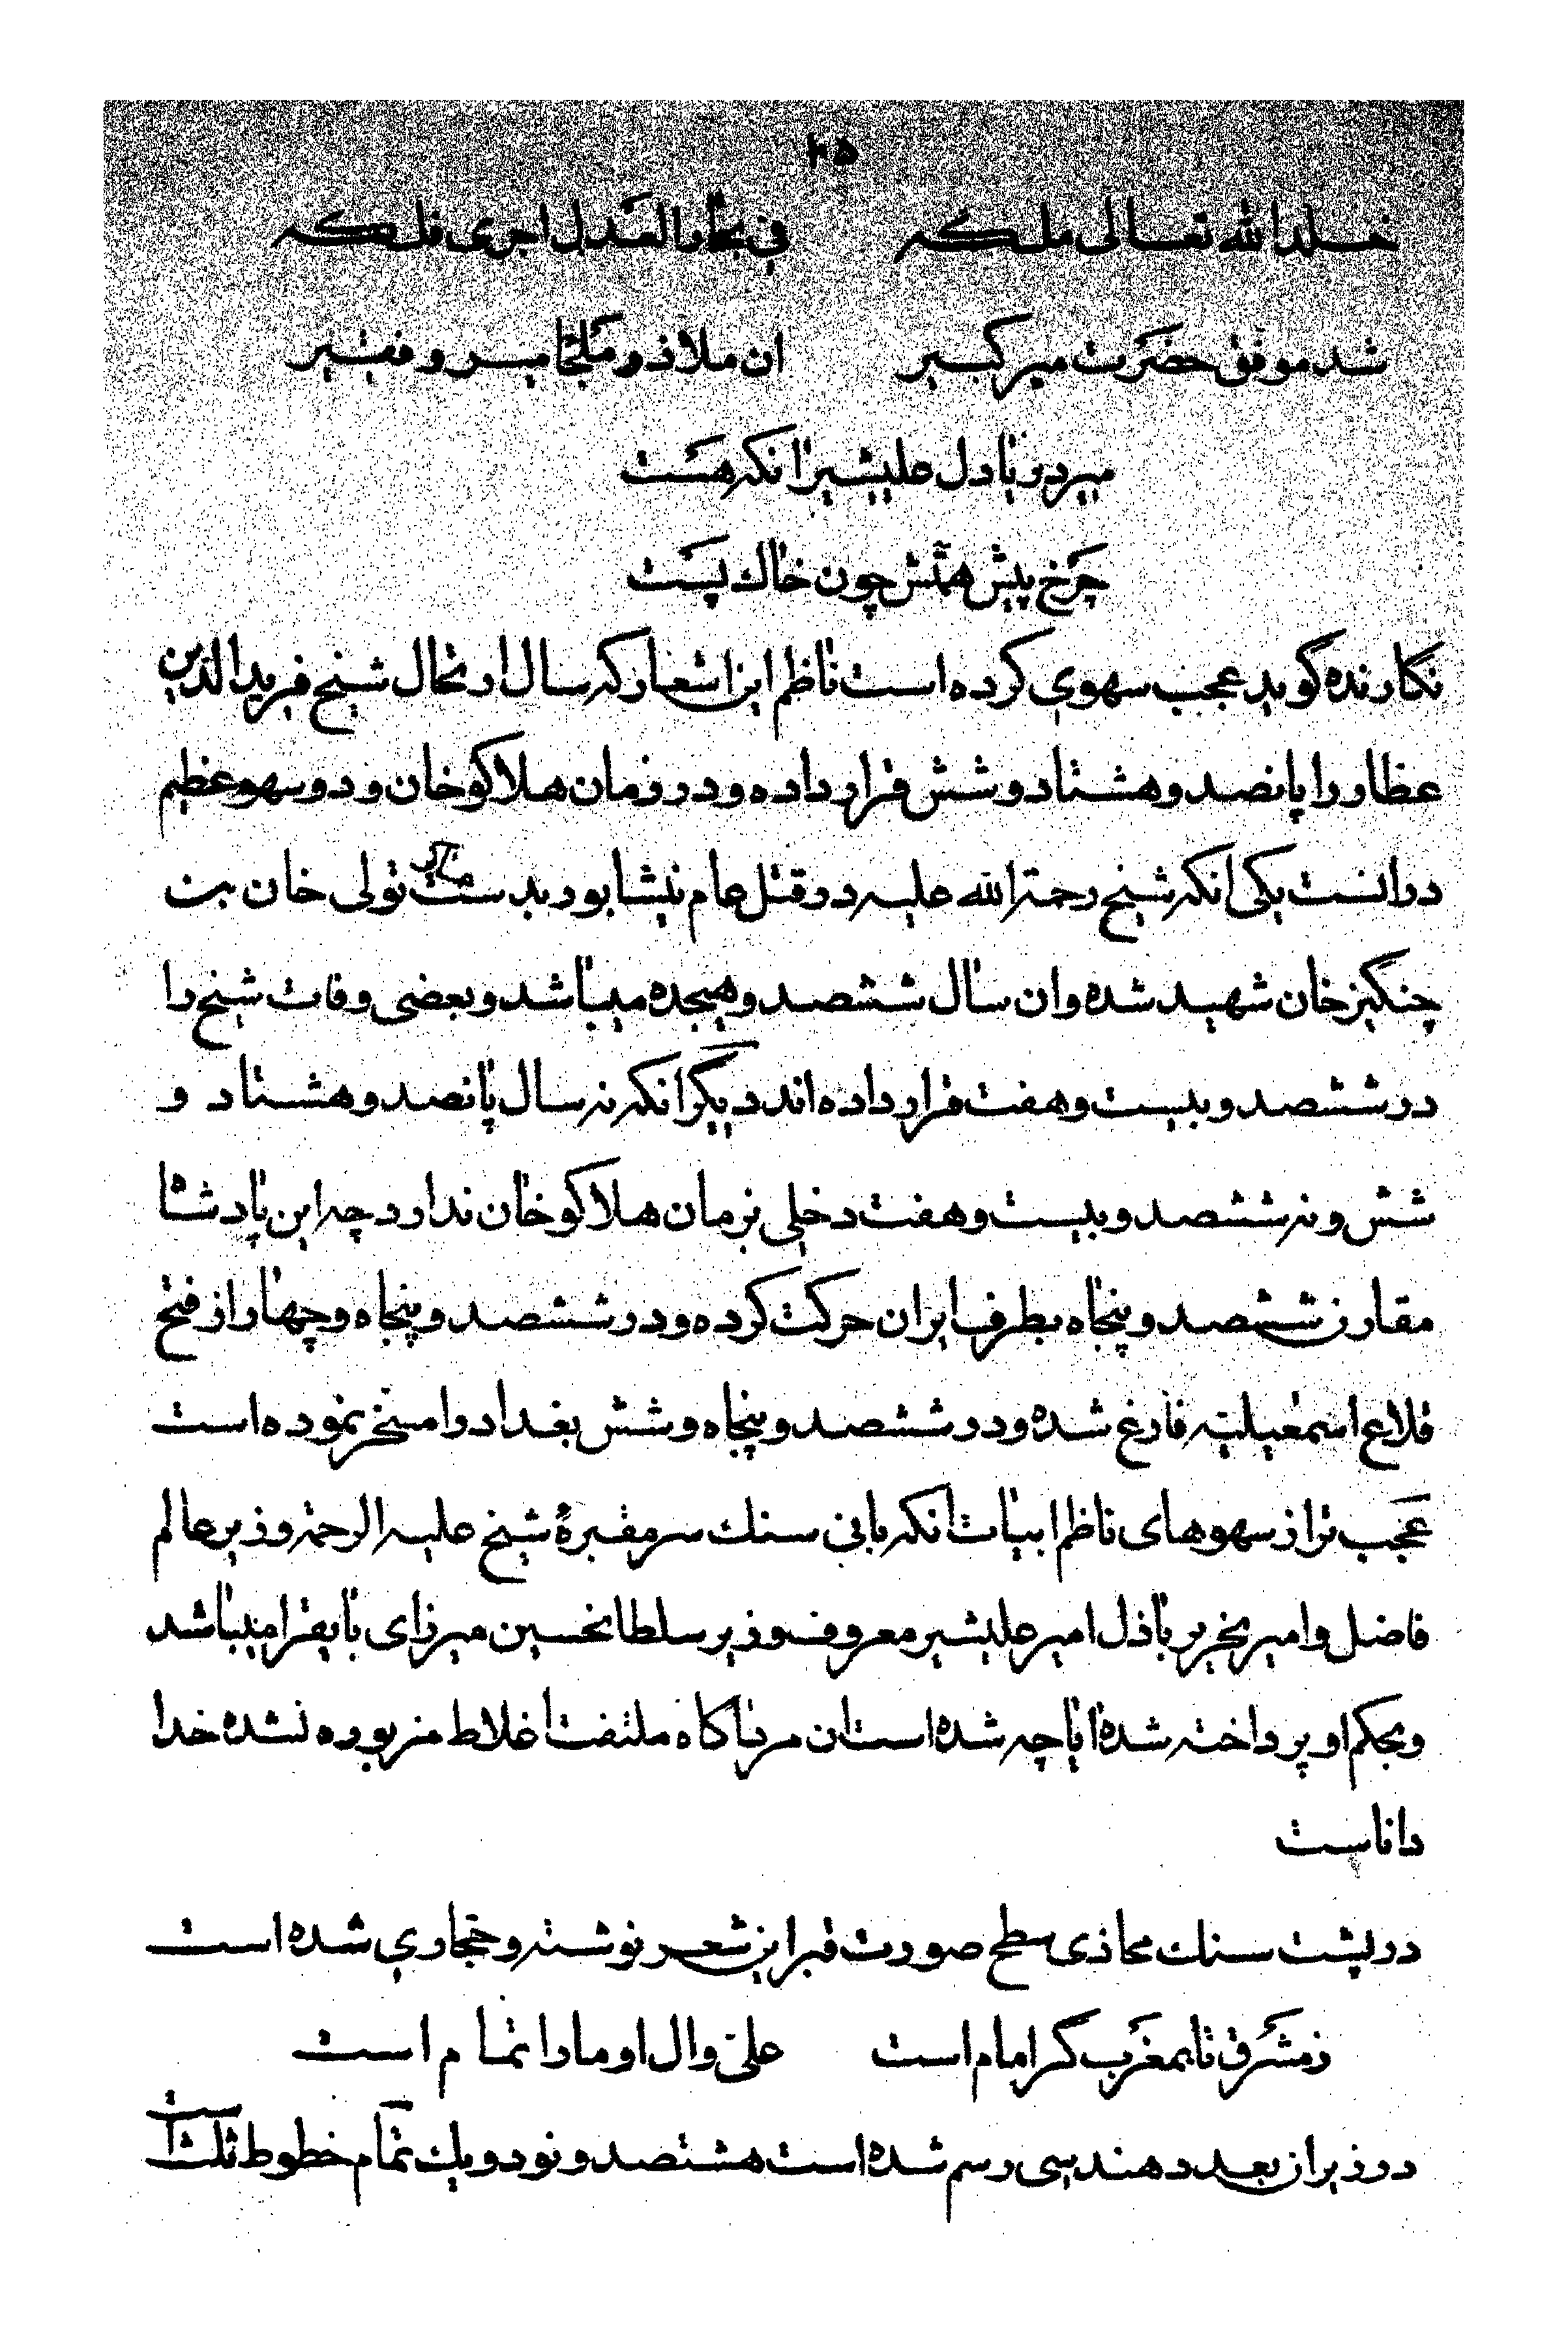 خلد الله تعالی ملکه فی بحار العدل اجری فلکه
شد موفق حضرت میر کبیر ان ملاذ و ملجا میر و فقیر
میر دریا دل علیشیر انکه هست
چرخ پیش همتش چون خاك پست
نگارنده گوید عجب سهوی کرده است ناظم این اشعار که سال ارتحال شیخ فرید الدین
عطار را پانصد و هشتاد و شش قرار داده و در زمان هلاکو خان و دو سهو عظیم
در انست یکی انکه شیخ رحمة الله علیه در قتل عام نیشابور بدست تولی خان بن
چنگیز خان شهید شده و ان سال ششصد و هیجده میباشد و بعضی وفات شیخ را
در ششصد و بیست و هفت قرار داده اند دیگر انکه نه سال پانصد و هشتاد و
شش و نه ششصد و بیست و هفت دخلی بزمان هلاکو خان ندارد چه این پادشاه
مقارن ششصد و پنجاه بطرف ایران حرکت کرده و در ششصد و پنجاه و چهار از فتح
قلاع اسمعیلیه فارغ شده و در ششصد و پنجاه و شش بغداد را مسخر نموده است
عجب تر از سهوهای ناظم ابیات انکه بانی سنك سر مقبرهٔ شیخ علیه الرحمة وزیر عالم
فاضل و امیر نحریر باذل امیر علیشیر معروف وزیر سلطانحسین میرزای بایقرا میباشد
و بحکم او پرداخته شده ایا چه شده است ان مرد اکاه ملتفت اغلاط مزبوره نشده خدا
داناست
در پشت سنك محاذی سطح صورت قبر این شعر نوشته و حجاری شده است
ز مشرق تا بمغرب گر امام است علی و ال او ما را تمام است
در زیر از بعد دهندسی رسم شده است هشتصد و نود و یك تمام خطوط ثلث است